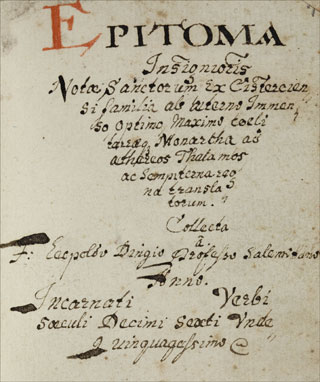 EPITOMA
Insignioris
Notæ Sanctorum Ex Cistercien
si familia ab æterno Immen
so Optimo Maximo coeli
terræq Monarcha ad
æthereos Thalamos
ac sempiterna reg
na transla
torum.
Collecta
a
F: Leopoldo Professo Salemitano
Anno.
Incarnati Verbi
Sæculi Decimi Sexti Unde
Quinquagessimo